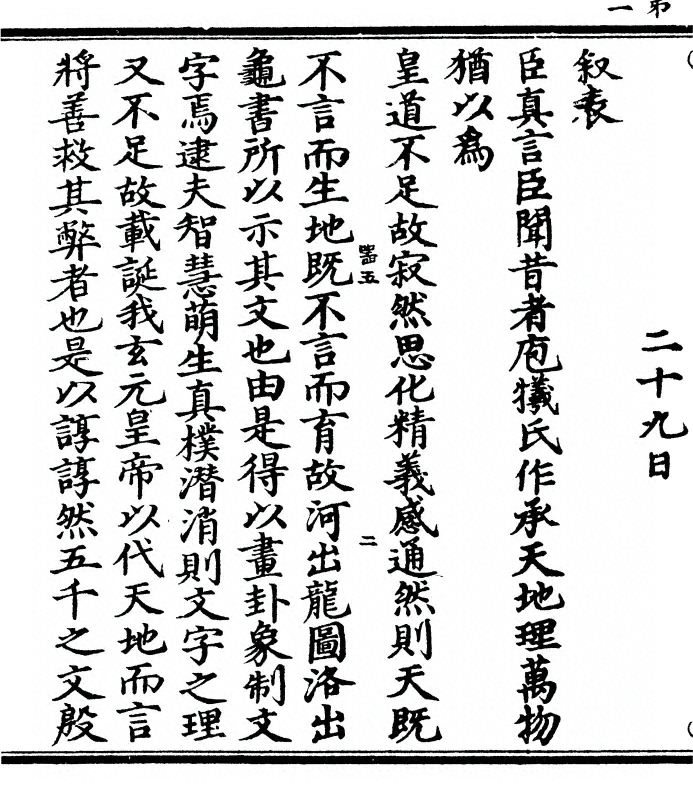 弟一
二十九日
叙表
臣真言臣聞昔者庖犧氏作承天地理萬物
猶以為
皇道不足故寂然思化精義感通然則天既
不言而生地既不言而育故河出龍圖洛出
五
二
龜書所以示其文也由是得以畫卦象制文
字焉逮夫智慧萌生真樸潛消則文字之理
又不足故載誕我玄元皇帝以代天地而言
將善救其弊者也是以諄諄然五千之文殷